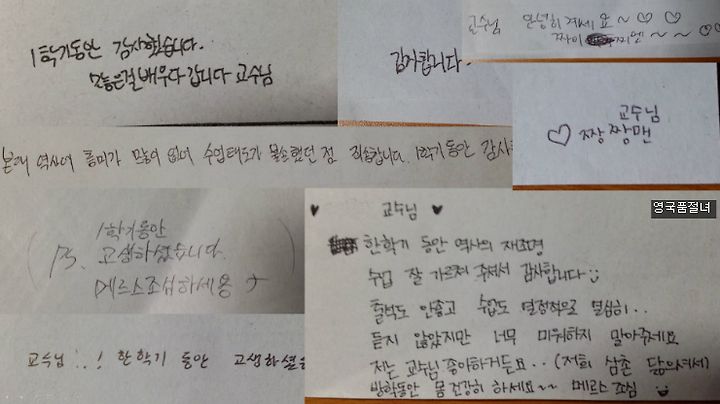 1학기동안 감사했습니다.
많은걸 배우다 갑니다 교수님
감사합니다.
교수님 안녕히 계세요~♡♡
짜이 찌엔~~♡♡
교수님
♡ 짱짱맨
본래 역사에 흥미가 많이 없어 수업태도가 불순했던 점 죄송합니다. 1학기동안 감사
영국품절녀
1학기동안
P.S. 고생하셨습니다.
메르스조심하세용
♥ 교수님 ♥
한학기 동안 역사의 재조명
수업 잘 가르쳐 주셔서 감사합니다
출석도 안좋고 수업도 열정적으로 열심히..
듣지 않았지만 너무 미워하지 말아주세요
저는 교수님 좋아하거든요.. (저희 삼촌 닮으셔서)
방학동안 몸 건강히 하세요~~ 메르스 조심
교수님..! 한학기 동안 고생하셨습